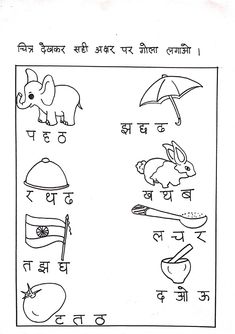 चित्र देखकर सही अक्षर पर गोला लगाओ ।
प ह ठ
झ छ ढ
र थ ढ
ख थ ब
त झ घ
ल च र
द ओ ऊ
ट त ठ